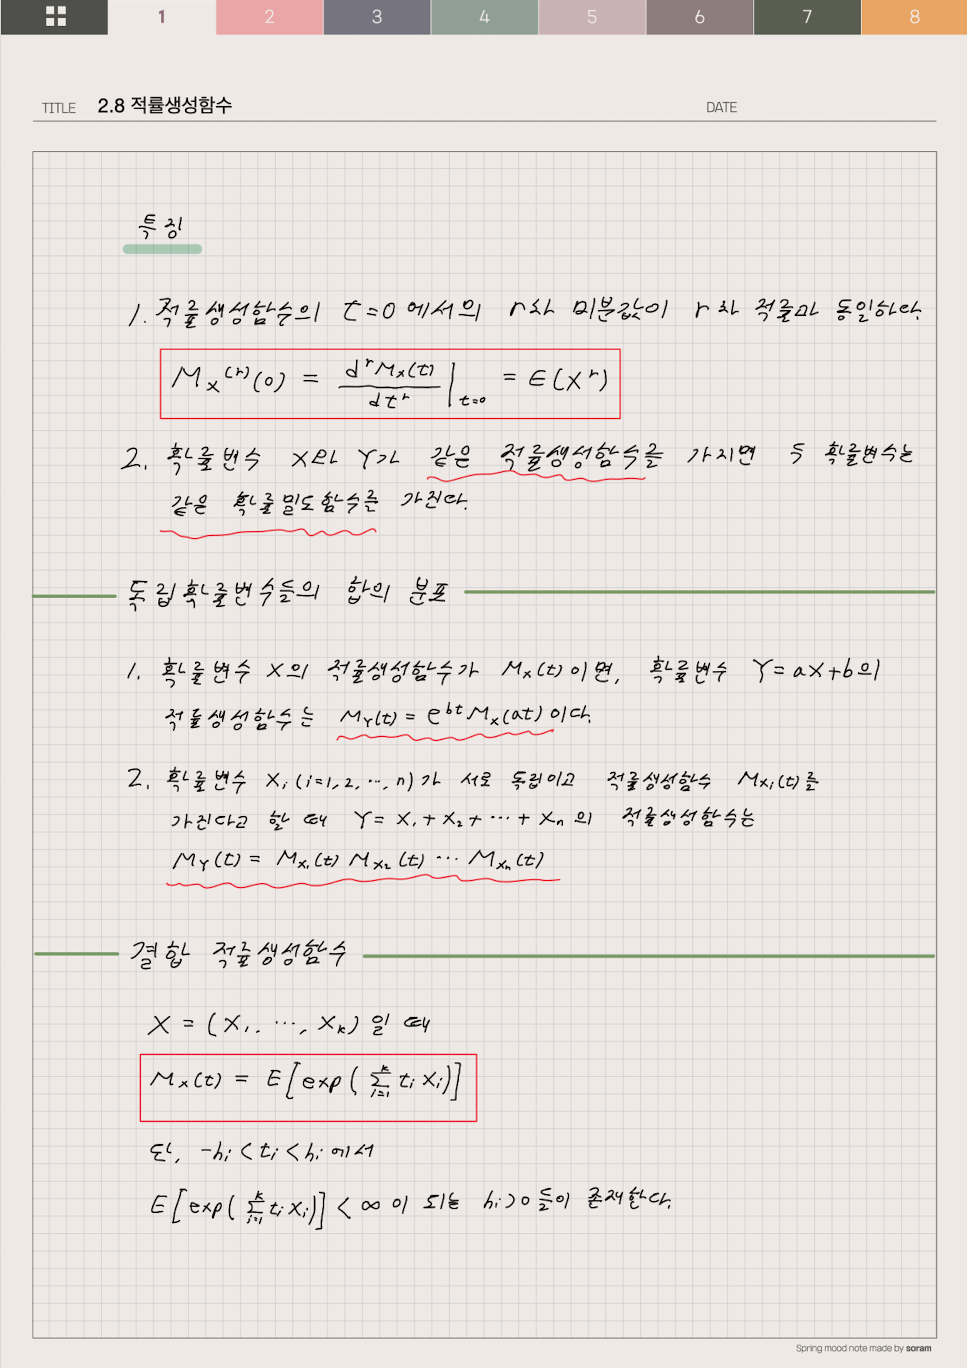 1 2 3 4 5 6 7 8
TITLE 2.8 적률생성함수 DATE
특징
1. 적률생성함수의 t=0 에서의 r차 미분값이 r차 적률과 동일하다.
M_X^{(r)}(0) = \frac{d^r M_X(t)}{dt^r} |_{t=0} = E(X^r)
2. 확률변수 X와 Y가 같은 적률생성함수를 가지면 두 확률변수는
같은 확률밀도함수를 가진다.
독립확률변수들의 합의 분포
1. 확률변수 X의 적률생성함수가 M_X(t)이면, 확률변수 Y=aX+b의
적률생성함수는 M_Y(t) = e^{bt} M_X(at) 이다.
2. 확률변수 X_i (i=1, 2, ..., n)가 서로 독립이고 적률생성함수 M_{X_i}(t)를
가진다고 할 때 Y = X_1 + X_2 + ... + X_n 의 적률생성함수는
M_Y(t) = M_{X_1}(t) M_{X_2}(t) ... M_{X_n}(t)
결합 적률생성함수
X = (X_1, ..., X_k) 일 때
M_X(t) = E[exp(\sum_{i=1}^{k} t_i X_i)]
단, -h_i < t_i < h_i 에서
E[exp(\sum_{i=1}^{k} t_i X_i)] < ∞ 이 되는 h_i > 0 들이 존재한다.
Spring mood note made by soram